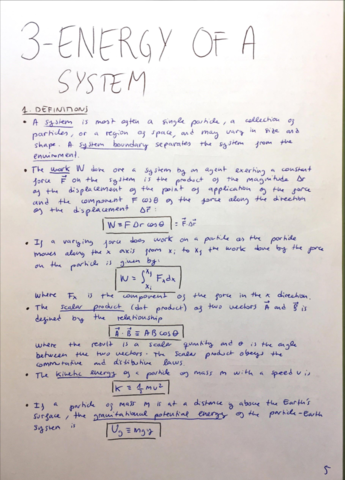 3-ENERGY OF A
SYSTEM
1. DEFINITIONS
• A system is most often a single particle, a collection of
particles, or a region of space, and may vary in size and
shape. A system boundary separates the system from the
environment.
• The work W done one a system by an agent exerting a constant
force F⃗ on the system is the product of the magnitude Δr
of the displacement of the point of application of the force
and the component F cosθ of the force along the direction
of the displacement Δr⃗:
W ≡ F Δr cosθ = F⃗·Δr⃗
• If a varying force does work on a particle as the particle
moves along the x axis from xi to xf the work done by the force
on the particle is given by:
W = ∫xi^xf Fx dx
where Fx is the component of the force in the x direction.
• The scalar product (dot product) of two vectors A⃗ and B⃗ is
defined by the relationship
A⃗·B⃗ ≡ AB cosθ
where the result is a scalar quantity and θ is the angle
between the two vectors. The scalar product obeys the
commutative and distributive laws
• The kinetic energy of a particle of mass m with a speed v is.
K ≡ ½ mv²
• If a particle of mass m is at a distance y above the Earth's
surface, the gravitational potential energy of the particle-Earth
system is
Ug ≡ mgy
5